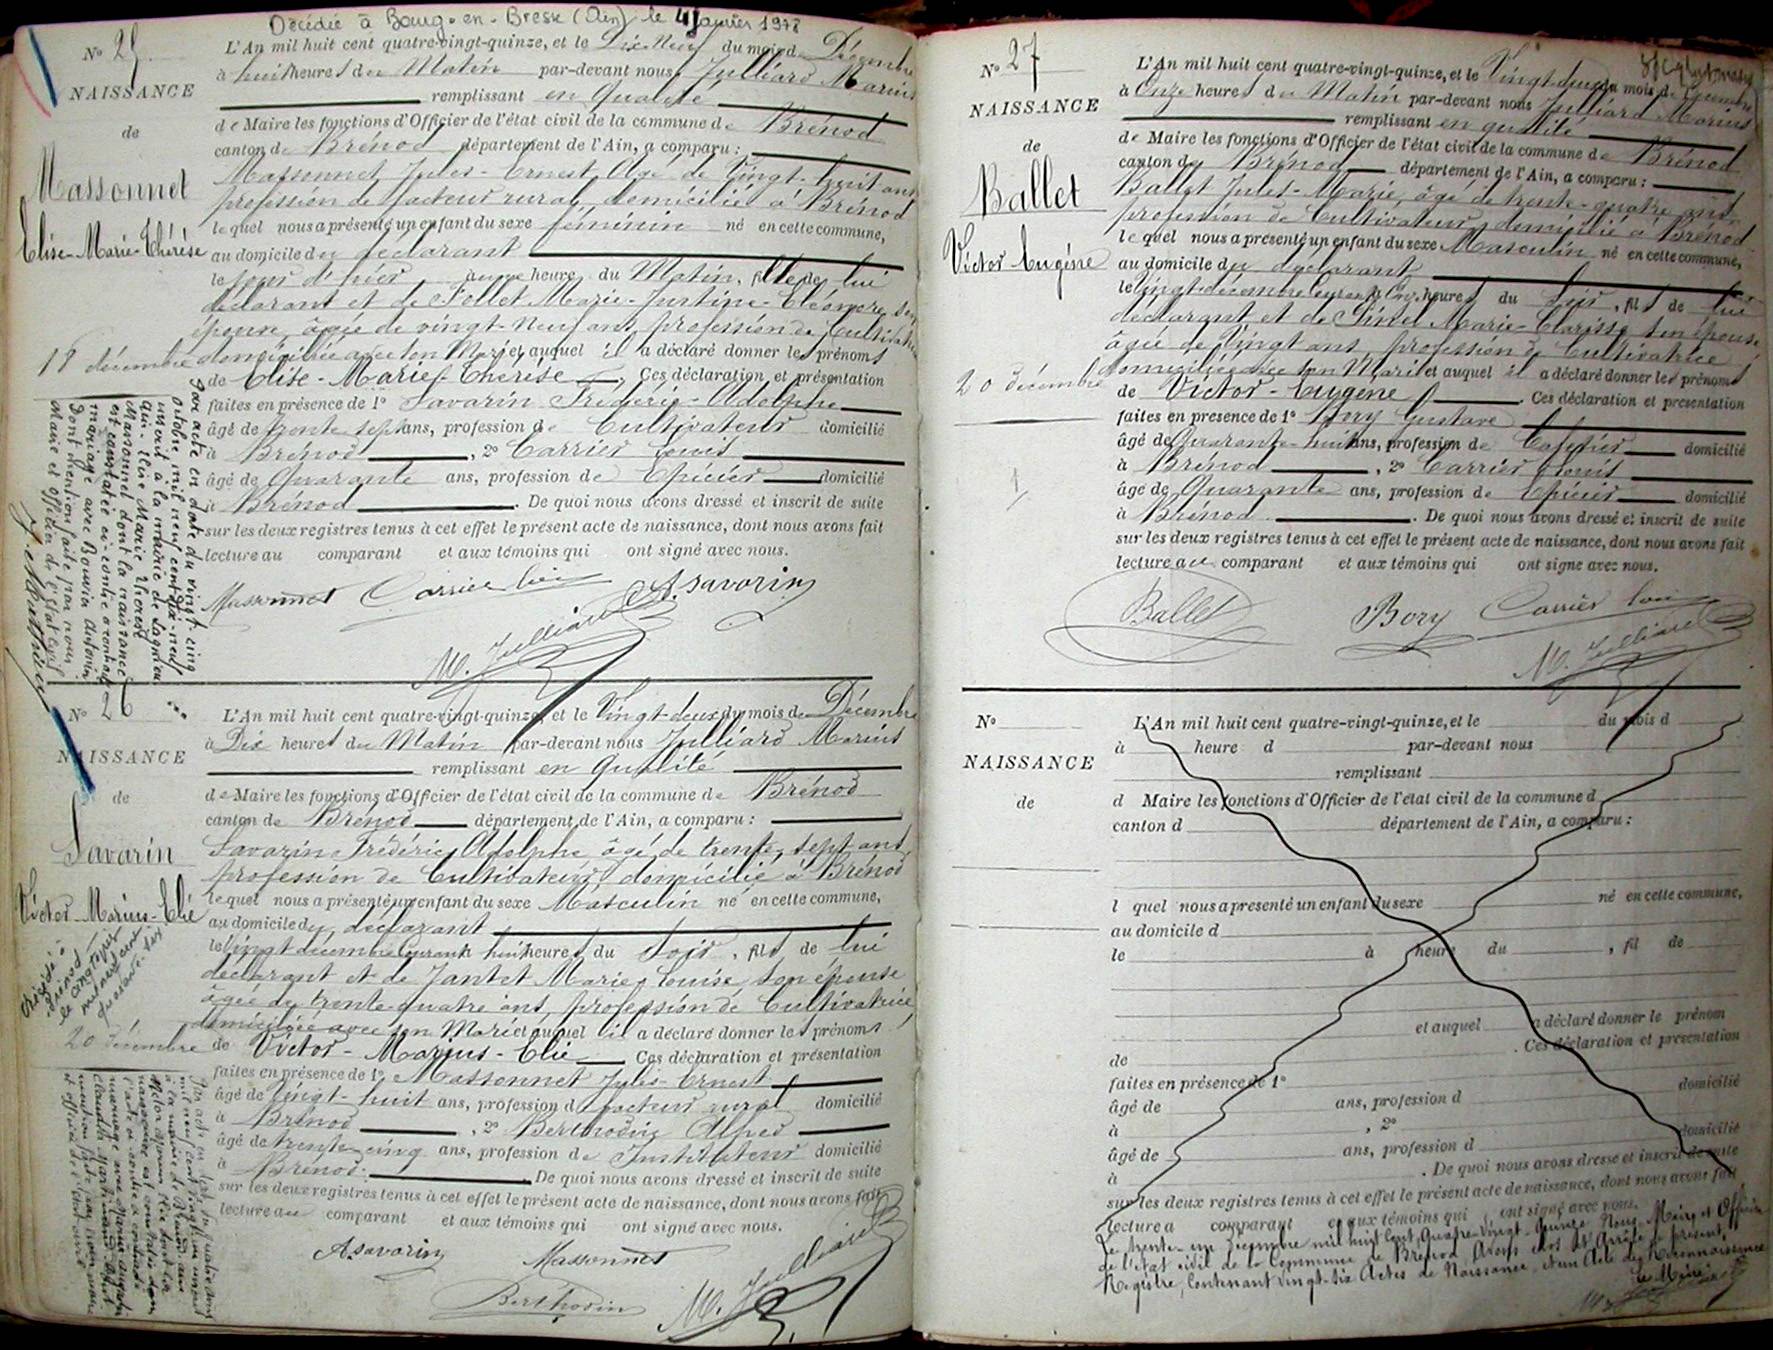 Décédée à Bourg-en-Bresse (Ain) le 4 janvier 1978
N° 25
NAISSANCE
de
Massonnet
Elise-Marie-Thérèse
18 décembre
L'An mil huit cent quatre-vingt-quinze, et le Dix Neuf du mois de Décembre
à huit heures du Matin par-devant nous Julliard Marius
remplissant en Qualité
de Maire les fonctions d'Officier de l'état civil de la commune de Brénod
canton de Brénod département de l'Ain, a comparu :
Massonnet Jules-Ernest Agé de Vingt-huit ans
profession de facteur rural, domicilié à Brénod
lequel nous a présenté un enfant du sexe féminin né en cette commune,
au domicile du déclarant
le jour d'hier à heure du Matin, fille de lui
déclarant et de Marie-Justine-Eléonore, son
épouse, âgée de vingt-neuf ans, profession de Cultivatrice
domiciliée avec son Mari et auquel il a déclaré donner les prénoms
de Elise-Marie-Thérèse. Ces déclaration et présentation
faites en présence de 1° Savarin Fréderic-Adolphe
âgé de trente sept ans, profession de Cultivateur domicilié
à Brénod, 2° Carrier Louis
âgé de Quarante ans, profession de Epicier domicilié
à Brénod. De quoi nous avons dressé et inscrit de suite
sur les deux registres tenus à cet effet le présent acte de naissance, dont nous avons fait
lecture au comparant et aux témoins qui ont signé avec nous.
Massonnet Carrier Louis A. Savarin
M. Julliard
par acte en date du vingt-cinq
octobre mil neuf cent dix-neuf
inscrit à la mairie de Lagnieu
Elise Marie Thérèse
Massonnet dont la naissance
est constatée ci-contre a contracté
mariage avec Bouvier Antonin
Dont mention faite par nous
Maire et Officier de l'Etat Civil
N° 26
NAISSANCE
de
Savarin
Victor-Marius-Elie
Décédé à
Brénod
le cinq
mil neuf cent
quarante-six
20 décembre
L'An mil huit cent quatre-vingt-quinze, et le Vingt-deux du mois de Décembre
à Dix heures du Matin par-devant nous Julliard Marius
remplissant en Qualité
de Maire les fonctions d'Officier de l'état civil de la commune de Brénod
canton de Brénod département de l'Ain, a comparu :
Savarin Fréderic Adolphe âgé de trente sept ans
profession de Cultivateur, domicilié à Brénod
lequel nous a présenté un enfant du sexe Masculin né en cette commune,
au domicile du déclarant
le Vingt décembre Courant huit heures du Soir, fils de lui
déclarant et de Jantet Marie Louise, son épouse
âgée de trente-quatre ans, profession de Cultivatrice
domiciliée avec son Mari et auquel il a déclaré donner les prénoms
de Victor-Marius-Elie Ces déclaration et présentation
faites en présence de 1° Massonnet Jules-Ernest
âgé de Vingt-huit ans, profession de facteur rural domicilié
à Brénod, 2° Berthodin Alfred
âgé de trente-cinq ans, profession de Instituteur domicilié
à Brénod. De quoi nous avons dressé et inscrit de suite
sur les deux registres tenus à cet effet le présent acte de naissance, dont nous avons fait
lecture au comparant et aux témoins qui ont signé avec nous.
A Savarin Massonnet
Berthodin M. Julliard
N° 27
NAISSANCE
de
Ballet
Victor Eugène
20 décembre
L'An mil huit cent quatre-vingt-quinze, et le Vingt-deux du mois de Décembre
à Onze heures du Matin par-devant nous Julliard Marius
remplissant en qualité
de Maire les fonctions d'Officier de l'état civil de la commune de Brénod
canton de Brénod département de l'Ain, a comparu :
Ballet Jules-Marie, âgé de trente-quatre ans
profession de Cultivateur, domicilié à Brénod
lequel nous a présenté un enfant du sexe Masculin né en cette commune,
au domicile du déclarant
le Vingt décembre Courant à Onze heures du Soir, fils de lui
déclarant et de Marie-Clarisse son épouse
âgée de Vingt ans, profession de Cultivatrice
domiciliée avec son Mari et auquel il a déclaré donner les prénoms
de Victor-Eugène. Ces déclaration et présentation
faites en présence de 1° Bory Gustave
âgé de Quarante-huit ans, profession de Cafetier domicilié
à Brénod, 2° Carrier Louis
âgé de Quarante ans, profession de Epicier domicilié
à Brénod. De quoi nous avons dressé et inscrit de suite
sur les deux registres tenus à cet effet le présent acte de naissance, dont nous avons fait
lecture au comparant et aux témoins qui ont signé avec nous.
Ballet Bory Carrier Louis
M. Julliard
N°
NAISSANCE
de
L'An mil huit cent quatre-vingt-quinze, et le du mois d
à heure d par-devant nous
remplissant
d Maire les fonctions d'Officier de l'état civil de la commune d
canton d département de l'Ain, a comparu :
l quel nous a présenté un enfant du sexe né en cette commune,
au domicile d
le à heure du , fil de
et auquel a déclaré donner le prénom
de . Ces déclaration et présentation
faites en présence de 1° domicilié
âgé de ans, profession d
à , 2° domicilié
âgé de ans, profession d
à . De quoi nous avons dressé et inscrit de suite
sur les deux registres tenus à cet effet le présent acte de naissance, dont nous avons fait
lecture a comparant et aux témoins qui ont signé avec nous.
Le trente-un Décembre mil huit Cent Quatre-Vingt-Quinze Nous Maire et Officier
de l'Etat civil de la Commune de Brénod Avons clos et Arrêté le présent
Registre, Contenant Vingt-six Actes de Naissance, et un Acte de Reconnaissance
Le Maire